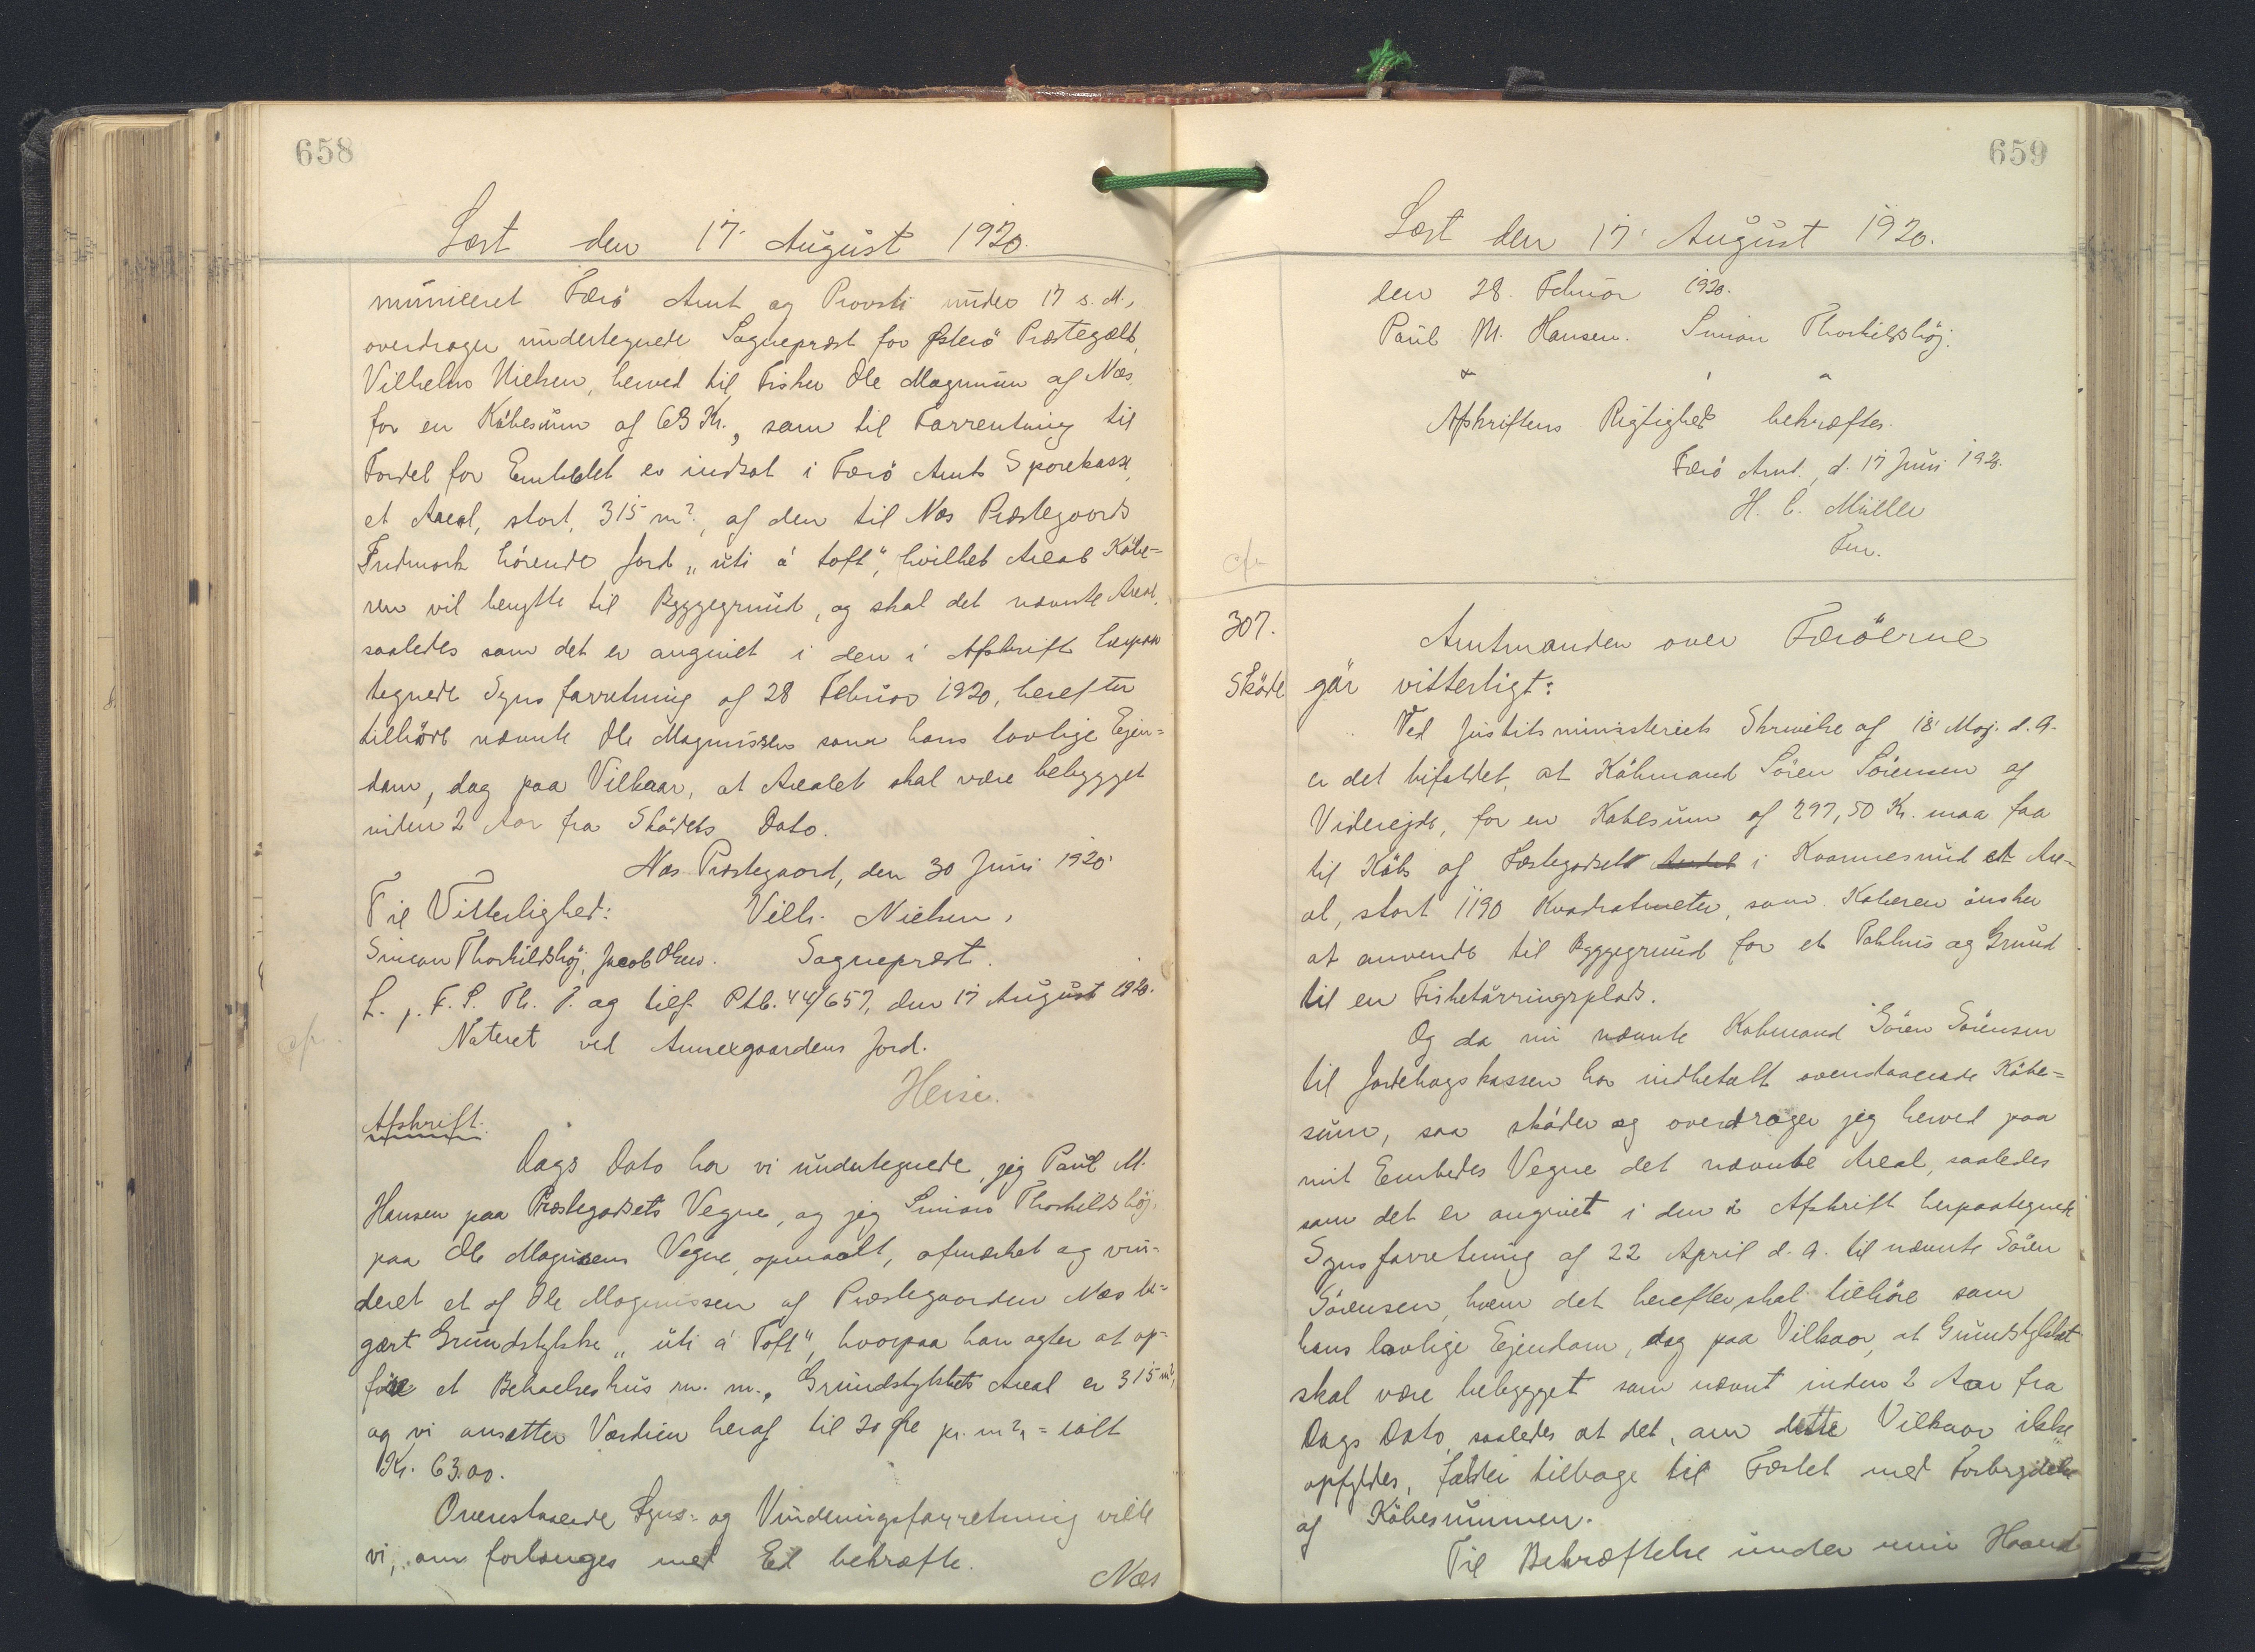 658
Læst den 17' August 1920.
municeret Færö Amt og Provsti under 17 s. M.,
overdrager undertegnede Sognepræst for Østerö Præstegæld,
Vilhelm Nielsen, herved til Fisker Ole Magnussen af Næs
for en Købesum af 63 Kr., som til Forrentning til
Fordel for Embedet er indsat i Færö Amts Sparekasse,
et Areal, stort, 315 m², af den til Næs Præstegaards
Indmark hørende Jord „uti á toft", hvilket Areal Købe-
ren vil benytte til Byggegrund, og skal det nævnte Areal,
saaledes som det er angivet i den i Afskrift herpaa
tegnede Synsforretning af 28 Februar 1920, herefter
tilhøre nævnte Ole Magnussen som hans lovlige Ejen-
dom, dog paa Vilkaar, at Arealet skal være bebygget
inden 2 Aar fra Skødets Dato.
Næs Præstegaard, den 30 Juni 1920
Til Vitterlighed: Vilh. Nielsen,
Simon Thorkildshöj, Jacob Olsen. Sognepræst.
L. p. F. S. Th. P. og tilf. Ptb. 44/657, den 17 August 1920.
Noteret ved Annexgaardens Jord.
Heise.
Afskrift.
Dags Dato har vi undertegnede, jeg Paul M.
Hansen paa Præstegodsets Vegne, og jeg Simon Thorkildshöj,
paa Ole Magnussens Vegne, opmaalt, afmærket og vur-
deret et af Ole Magnussen af Præstegaarden Næs be-
gært Grundstykke „uti á Toft", hvorpaa han agter at op-
føre et Beboelseshus m. m., Grundstykkets Areal er 315 m²,
og vi ansætter Værdien heraf til 20 Øre pr. m², = ialt
Kr. 63.00.
Ovenstaaende Syns- og Vurderingsforretning ville
vi, om forlanges med Ed bekræfte.
Næs
659
Læst den 17' August 1920.
den 28. Februar 1920.
Paul M. Hansen. Simon Thorkildshöj.
Afskriftens Rigtighed bekræftes.
Færö Amt., d. 17 Juni 1920.
H. C. Müller
Fm.
cfr
307.
Skøde
Amtmanden over Færöerne
gør vitterligt:
Ved Justitsministeriets Skrivelse af 18' Maj. d. A.
er det bifaldet, at Købmand Sören Sörensen af
Viderejde, for en Købesum af 297,50 Kr. maa faa
til Købs af Fæstegodset i Kvannesund et Are-
al, stort 1190 Kvadratmeter, som Køberen ønsker
at anvende til Byggegrund for et Pakhus og Grund
til en Fisketørringsplads.
Og da nu nævnte Købmand Sören Sörensen
til Jordebogskassen har indbetalt ovenstaaende Købe-
sum, saa skøder og overdrager jeg herved paa
mit Embedes Vegne det nævnte Areal, saaledes
som det er angivet i den i Afskrift herpaategnede
Synsforretning af 22 April d. A. til nævnte Sören
Sörensen, hvem det herefter skal tilhøre som
hans lovlige Ejendom, dog paa Vilkaar, at Grundstykket
skal være bebygget som nævnt inden 2 Aar fra
Dags Dato, saaledes at det, om dette Vilkaar ikke
opfyldes, falder tilbage til Fæstet med Forbrydelse
af Købesummen.
Til Bekræftelse under min Haand